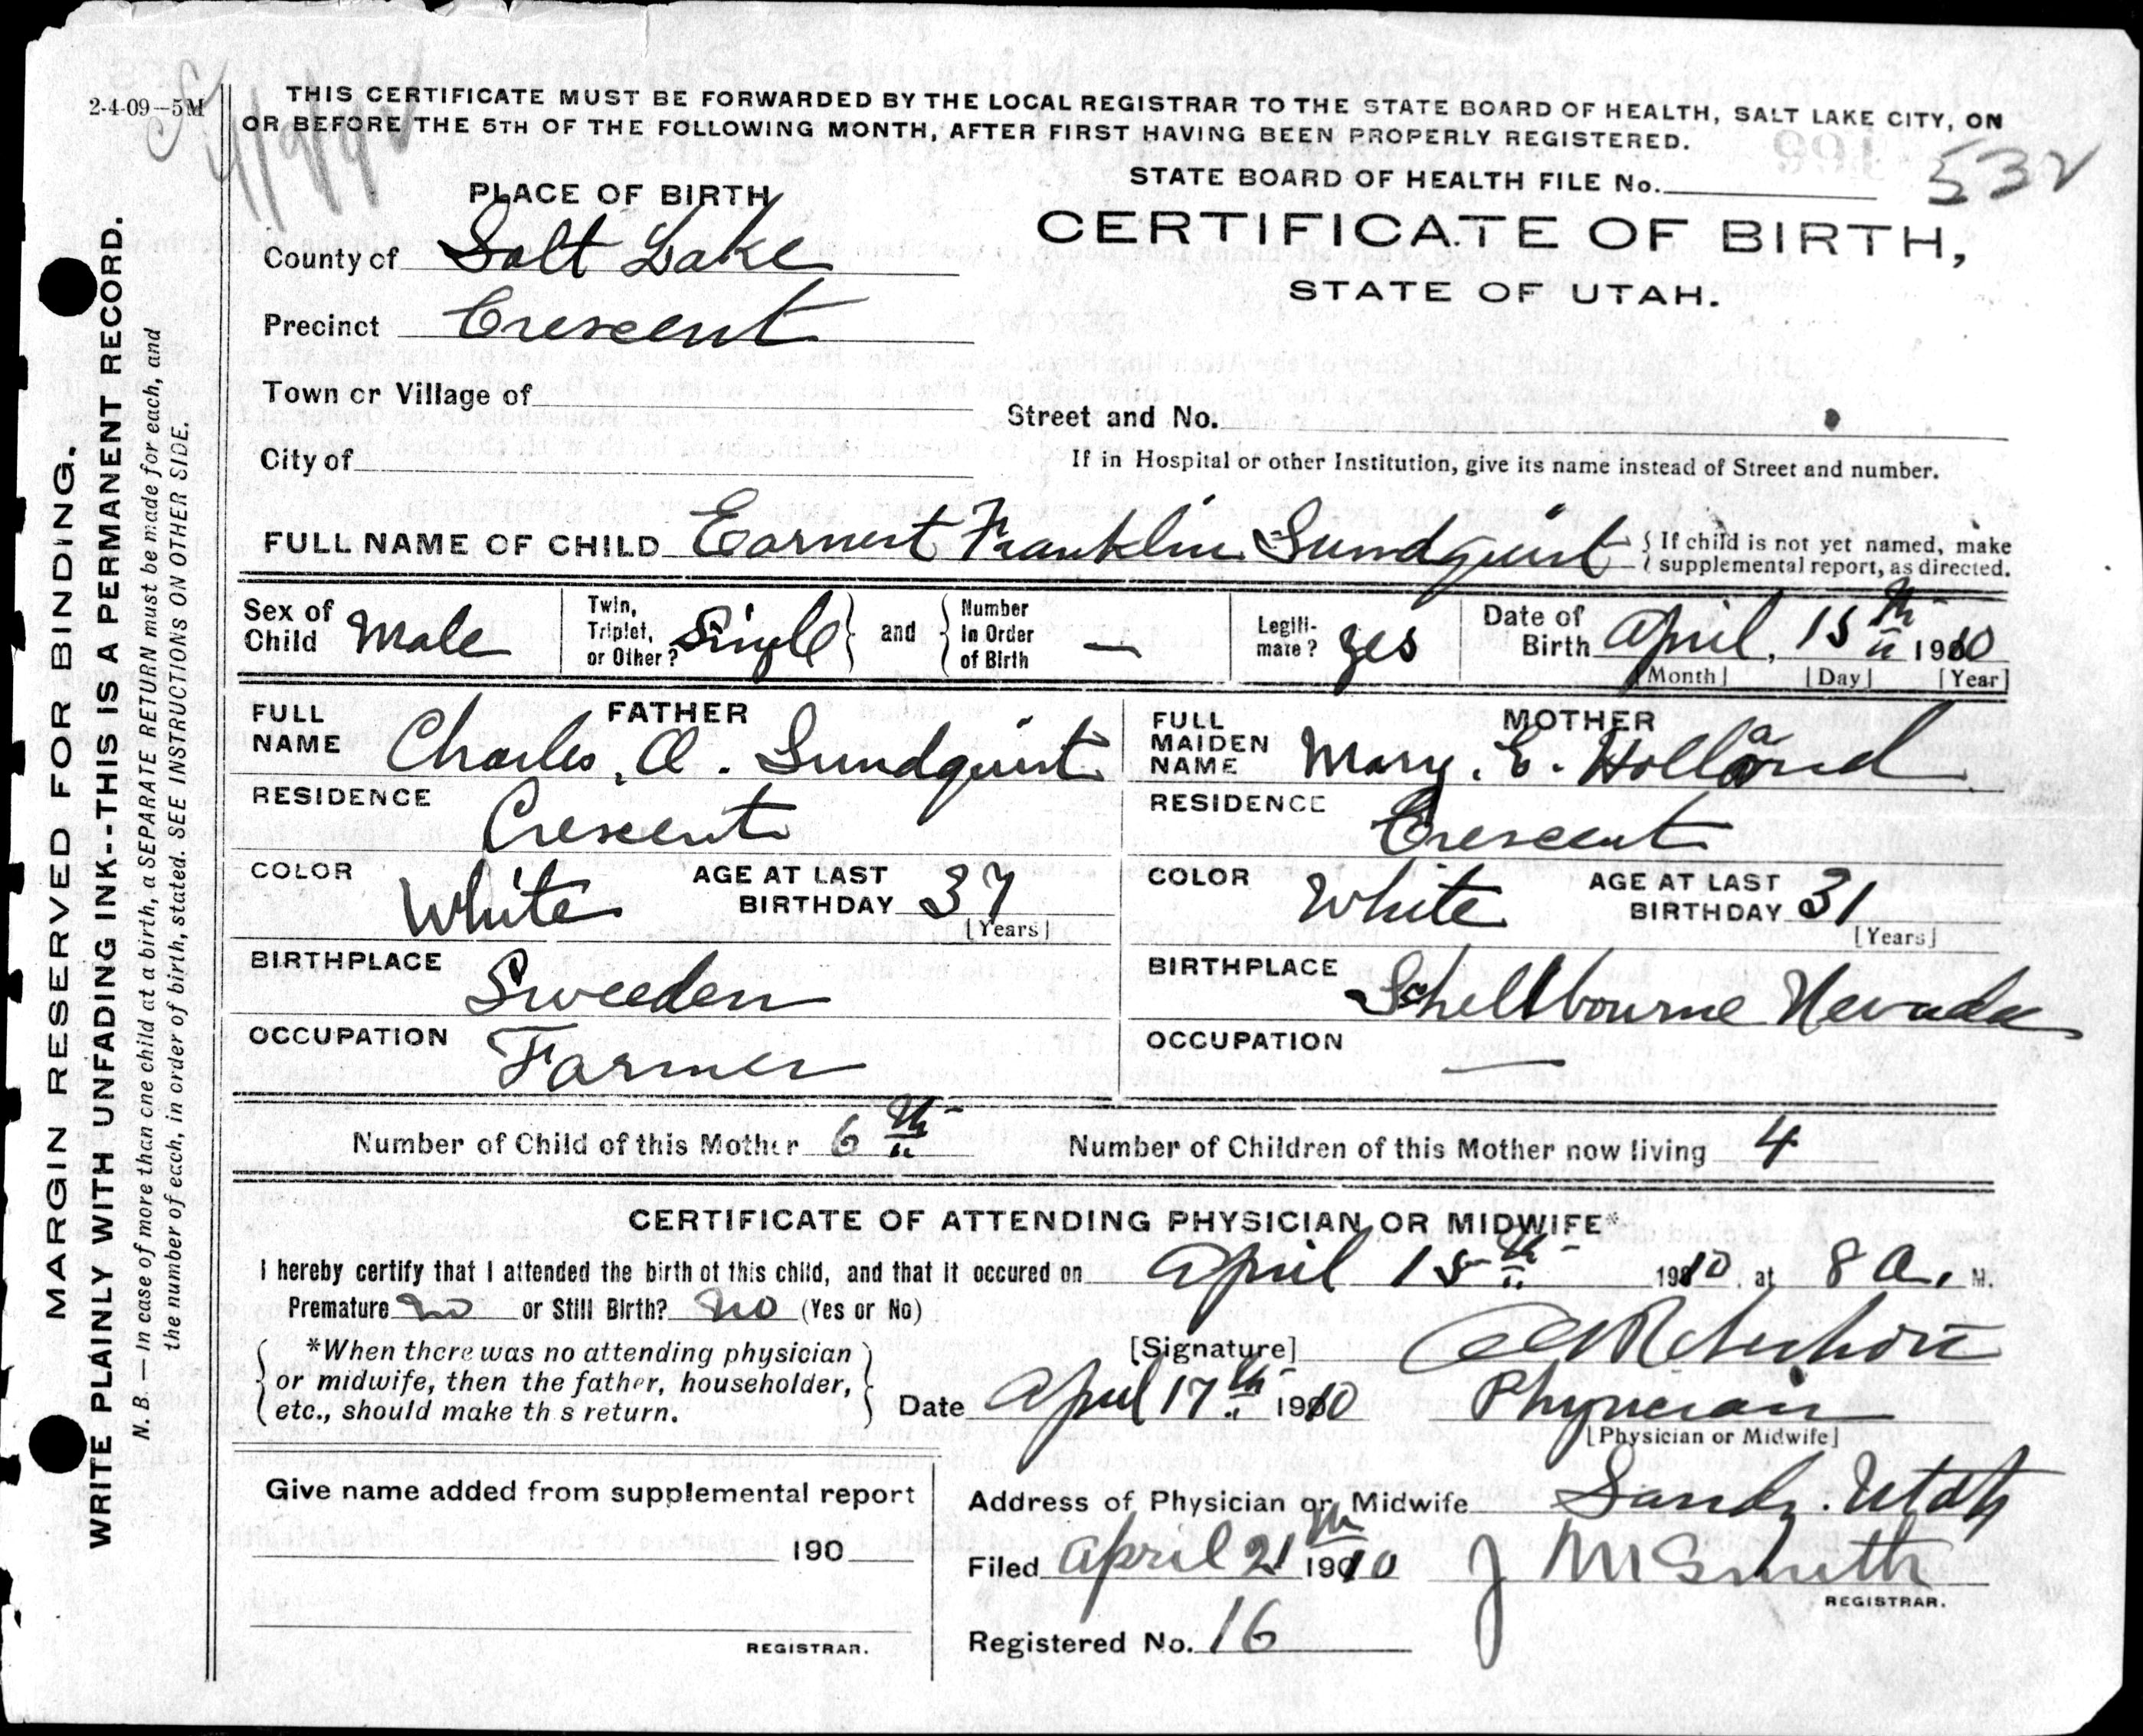 2-4-09—5M
THIS CERTIFICATE MUST BE FORWARDED BY THE LOCAL REGISTRAR TO THE STATE BOARD OF HEALTH, SALT LAKE CITY, ON
OR BEFORE THE 5TH OF THE FOLLOWING MONTH, AFTER FIRST HAVING BEEN PROPERLY REGISTERED.
STATE BOARD OF HEALTH FILE No. 532
PLACE OF BIRTH
CERTIFICATE OF BIRTH,
STATE OF UTAH.
County of Salt Lake
Precinct Crescent
Town or Village of
Street and No.
City of
If in Hospital or other Institution, give its name instead of Street and number.
FULL NAME OF CHILD Earnest Franklin Sundquist { If child is not yet named, make
supplemental report, as directed.
Sex of Child Male Twin, Triplet, or Other? Single } and { Number in Order of Birth — Legiti-mate? yes Date of Birth April, 15th 1910
[Month] [Day] [Year]
FATHER
FULL NAME Charles, A. Sundquist
MOTHER
FULL MAIDEN NAME Mary. E. Holland
RESIDENCE Crescent
RESIDENCE Crescent
COLOR White AGE AT LAST BIRTHDAY 37 [Years]
COLOR White AGE AT LAST BIRTHDAY 31 [Years]
BIRTHPLACE Sweeden
BIRTHPLACE Schellbourne Nevada
OCCUPATION Farmer
OCCUPATION —
Number of Child of this Mother 6th Number of Children of this Mother now living 4
CERTIFICATE OF ATTENDING PHYSICIAN OR MIDWIFE*
I hereby certify that I attended the birth of this child, and that it occured on April 15th 1910, at 8 A. M.
Premature no or Still Birth? no (Yes or No)
*When there was no attending physician
or midwife, then the father, householder,
etc., should make th s return.
[Signature]
Date April 17th 1910 Physician
[Physician or Midwife]
Give name added from supplemental report
190
REGISTRAR.
Address of Physician or Midwife Sandy. Utah
Filed April 21th 1910 J M Smith
REGISTRAR.
Registered No. 16
MARGIN RESERVED FOR BINDING.
WRITE PLAINLY WITH UNFADING INK--THIS IS A PERMANENT RECORD.
N. B.—In case of more than one child at a birth, a SEPARATE RETURN must be made for each, and
the number of each, in order of birth, stated. SEE INSTRUCTIONS ON OTHER SIDE.